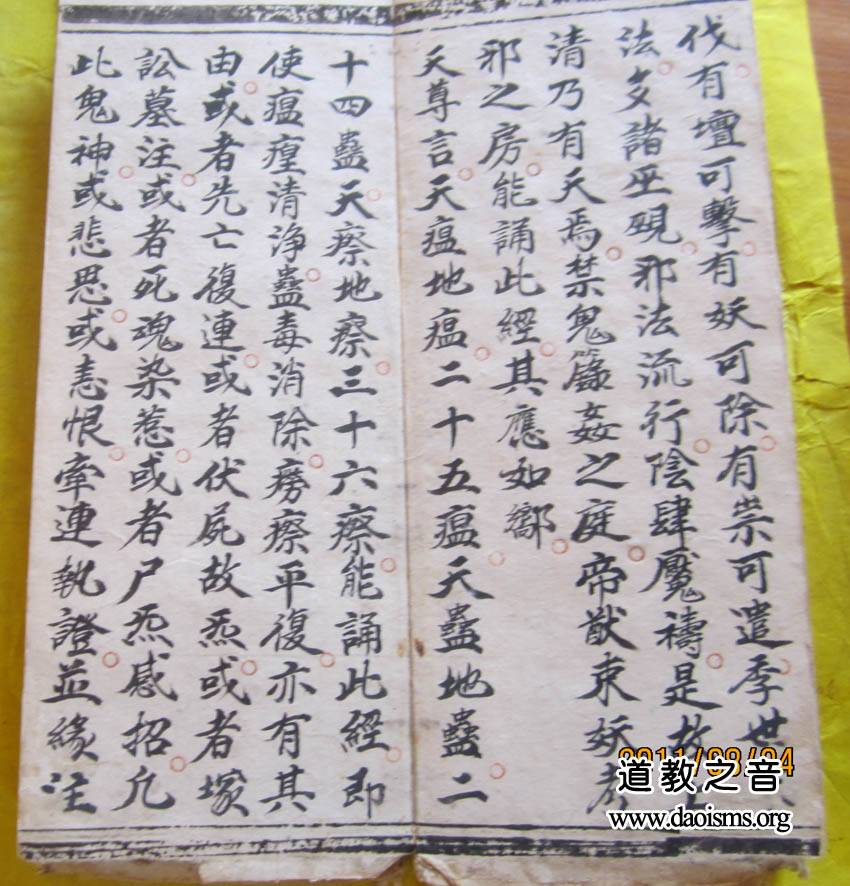 伐有壇可擊有妖可除有祟可遣季世
法多諸巫覡邪法流行陰肆魘禱是故
清乃有天焉禁鬼籙姦之庭帝猷束妖考
邪之房能誦此經其應如嚮
天尊言天瘟地瘟二十五瘟天蠱地蠱二
十四蠱天瘵地瘵三十六瘵能誦此經即
使瘟㾮清浄蠱毒消除癆瘵平復亦有其
由或者先亡復連或者伏屍故炁或者塚
訟墓注或者死魂染惹或者尸炁感招凡
此鬼神或悲思或恚恨牽連執證並緣注
2011/03/24
道教之音
www.daoisms.org